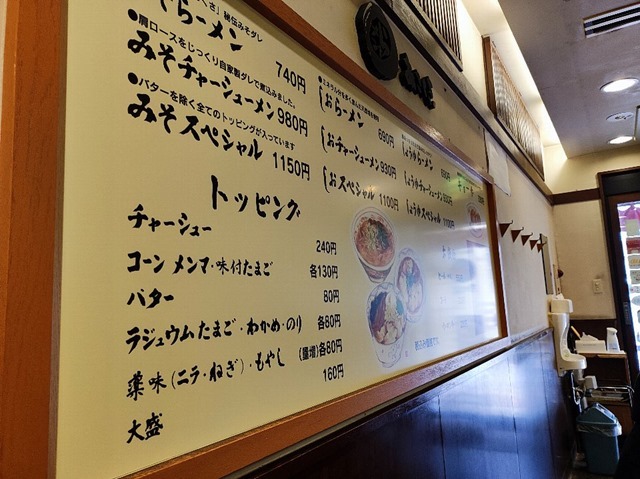 みそラーメン 740円
●肩ロースをじっくり自家製ダレで煮込みました。
みそチャーシューメン 980円
●バターを除く全てのトッピングが入っています
みそスペシャル 1150円
しおラーメン 690円
しおチャーシューメン 930円
しおスペシャル 1100円
しょうゆラーメン
しょうゆチャーシューメン
しょうゆスペシャル 1100円
トッピング
チャーシュー 240円
コーン メンマ・味付たまご 各130円
バター 80円
ラジュウムたまご・わかめ・のり 各80円
薬味(ニラ・ねぎ)・もやし (量増)各80円
大盛 160円